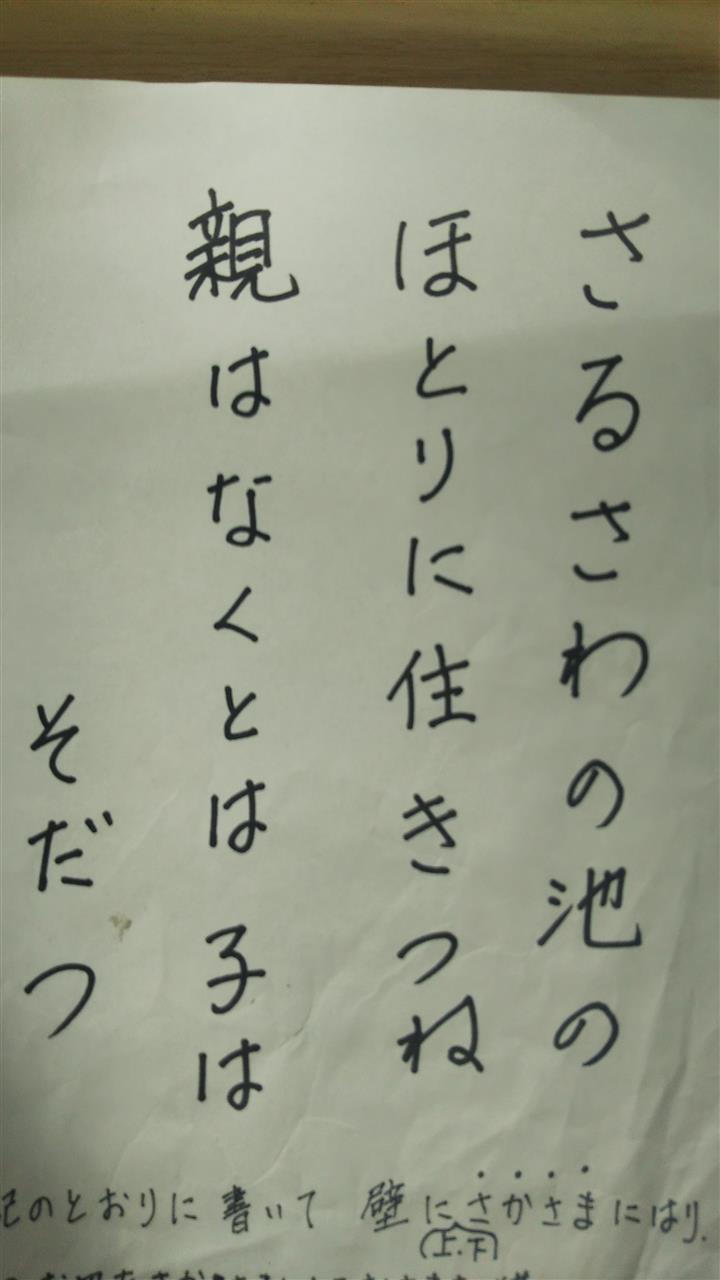 さるさわの池の
ほとりに住きつね
親はなくとは子は
そだつ
記のとおりに書いて 壁にさかさまにはり.
(上.下)